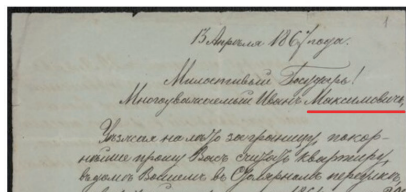 13 Апреля 1867 года.
1
Милостивый Государь!
Многоуважаемый Иванъ Максимовичъ,
Уѣзжая на лѣто заграницу, покор-
нѣйше прошу Васъ считать квартиру,
въ домѣ Вашемъ въ